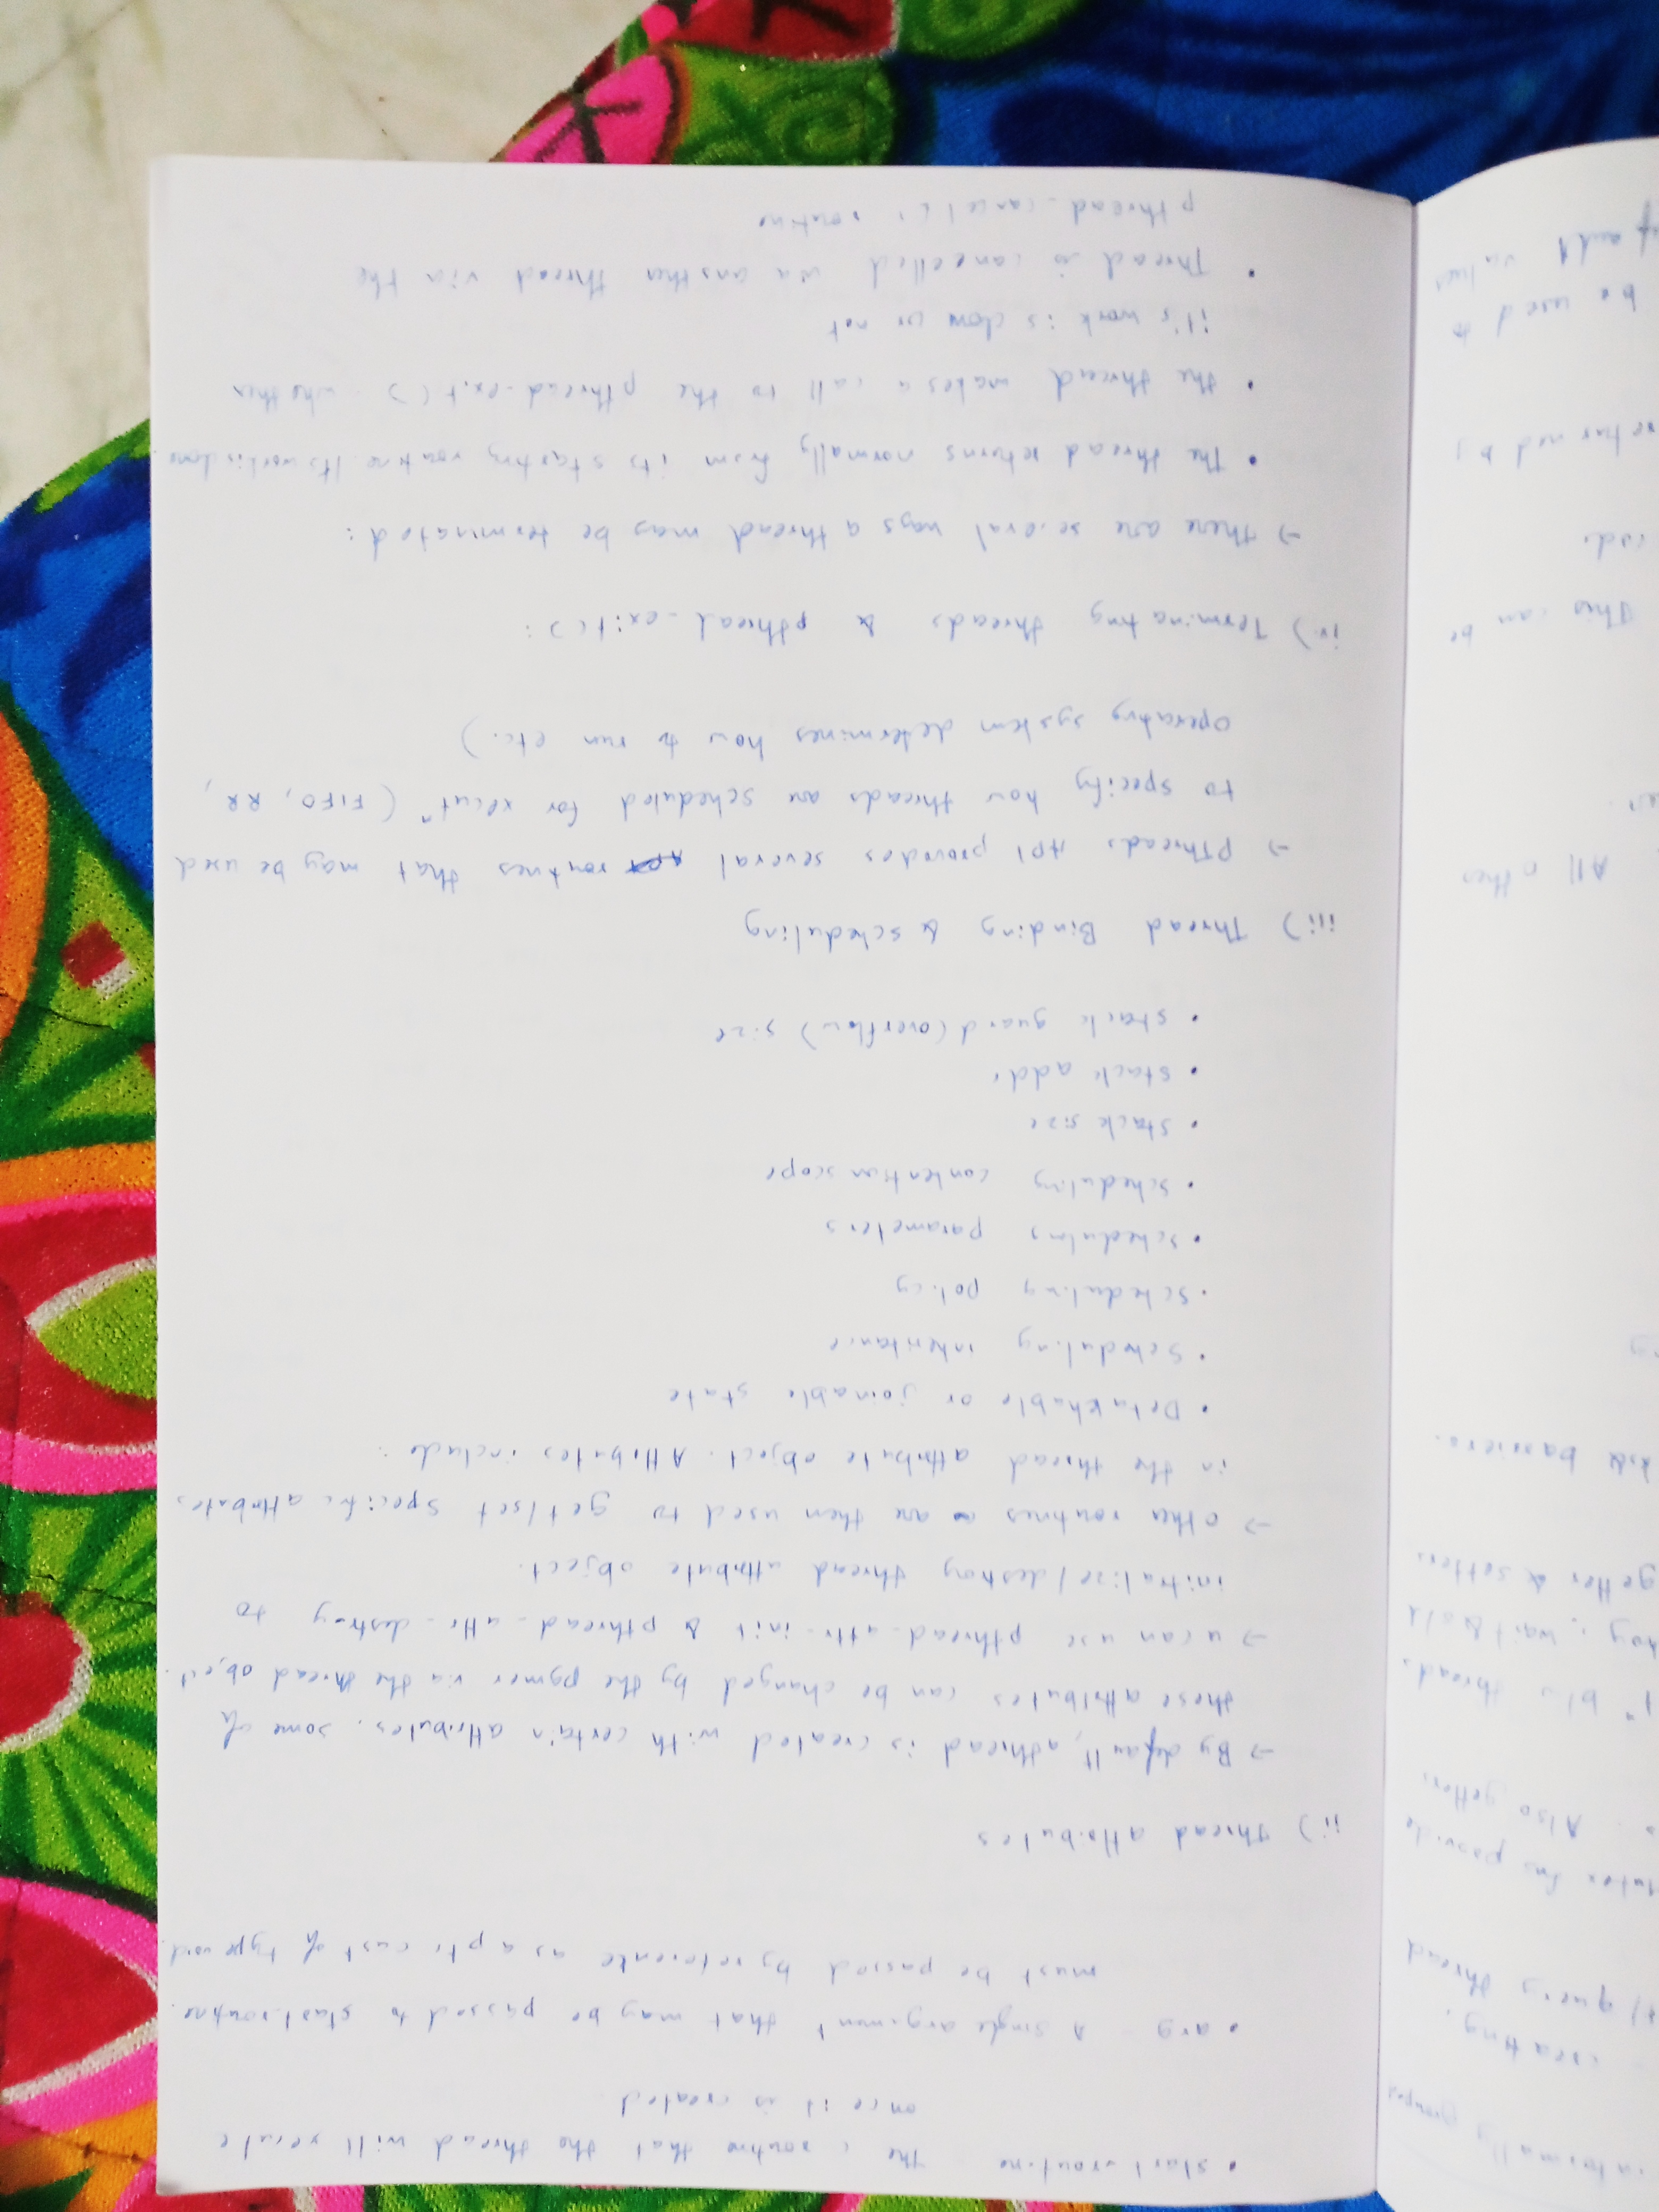 • start routine - The C routine that the thread will xecute
once it is created
• arg - A single argument that may be passed to start routine.
must be passed by reference as a ptr cast of type void.
ii) Thread attributes
→ By default, a thread is created with certain attributes. some of
these attributes can be changed by the pgmer via the thread object.
→ u can use pthread_attr_init & pthread_attr_destroy to
initialize/destroy thread attribute object.
→ other routines are then used to get/set specific attributes
in the thread attribute object. Attributes include :
• Detatchable or joinable state
• Scheduling inheritance
• Scheduling policy
• Scheduling parameters
• Scheduling contention scope
• Stack size
• Stack addr
• Stack guard (overflow) size
iii) Thread Binding & scheduling
→ PThreads API provides several routines that may be used
to specify how threads are scheduled for xecutⁿ (FIFO, RR,
operating system determines how to run etc.)
iv) Terminating threads & pthread_exit() :
→ There are several ways a thread may be terminated :
• The thread returns normally from its starting routine. Its work is done.
• the thread makes a call to the pthread_exit() - whether
it's work is done or not
• Thread is cancelled via another thread via the
pthread_cancel() routine
informally grouped
creating,
query thread
Mutex fns provide
Also getters
b/w threads
wait &
getter & setter.
barriers.
All other
This can be
returned by
be used to
values